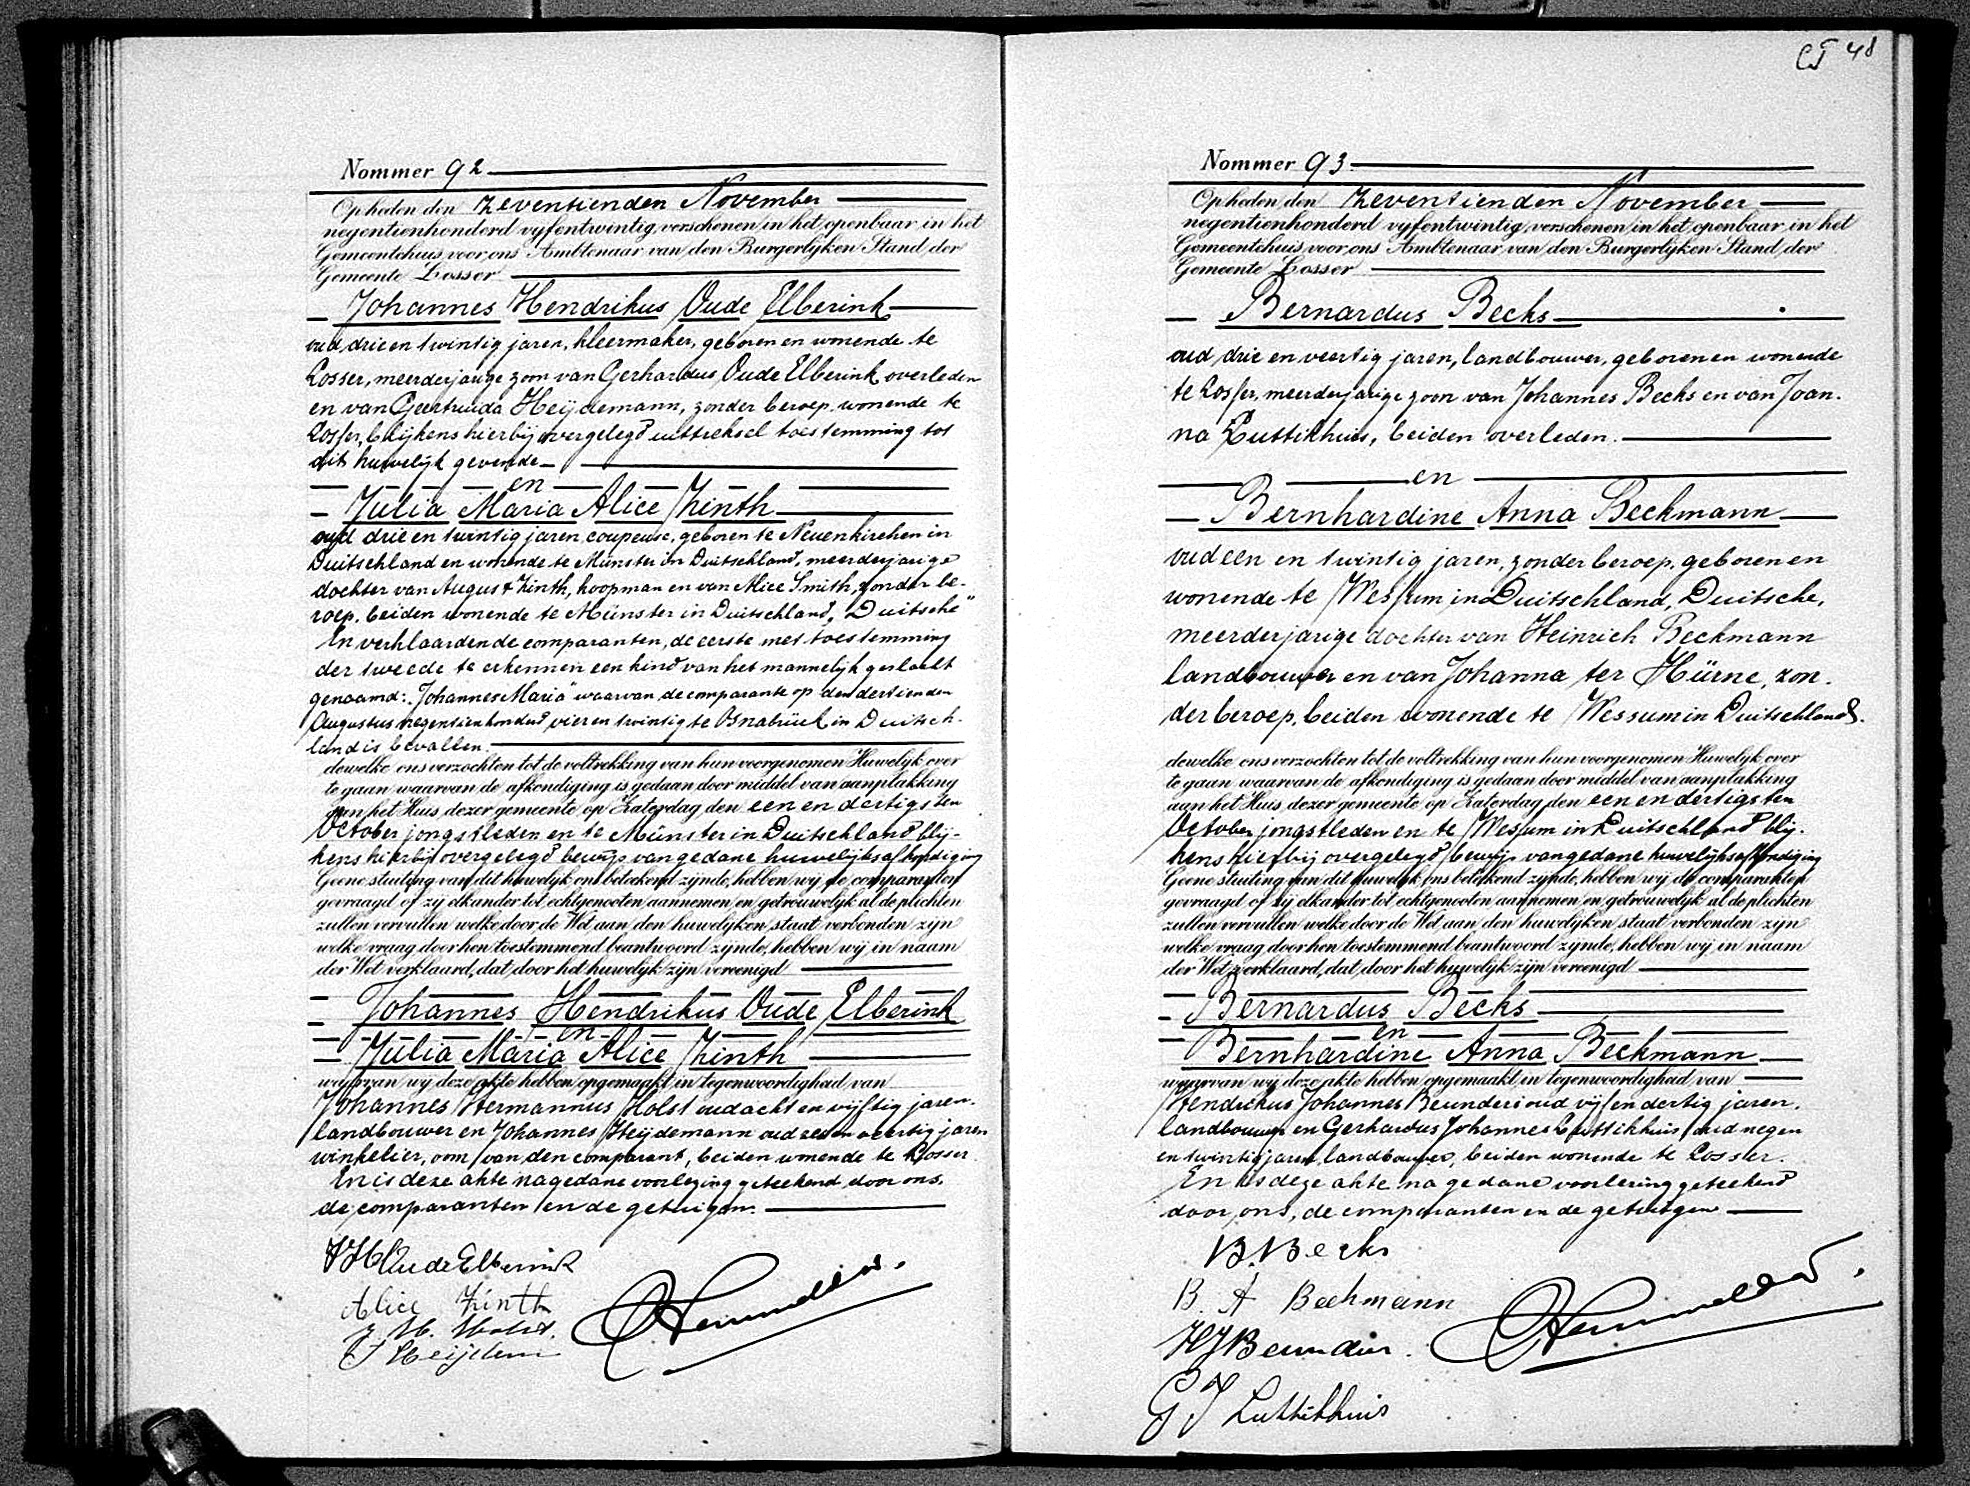 Nommer 92
Op heden den zeventienden November
negentienhonderd vyfentwintig, verschenen in het openbaar in het
Gemeentehuis, voor ons Ambtenaar van den Burgerlyken Stand der
Gemeente Losser
Johannes Hendrikus Oude Elberink
oud drie en twintig jaren, kleermaker, geboren en wonende te
Losser, meerderjarige zoon van Gerhardus Oude Elberink overleden
en van Geertruida Heijdemann, zonder beroep, wonende te
Losser, blijkens hierbij overgelegd uittreksel toestemming tot
dit huwelijk gevende
en
Julia Maria Alice Zinth
oud drie en twintig jaren, coupeuse, geboren te Neuenkirchen in
Duitschland en wonende te Münster in Duitschland, meerderjarige
dochter van August Zinth, koopman en van Alice Smith, zonder be-
roep, beiden wonende te Münster in Duitschland, "Duitsche"
En verklaarden de comparanten, de eerste met toestemming
der tweede te erkennen een kind van het mannelijk geslacht
genaamd: "Johannes Maria" waarvan de comparante op den dertienden
Augustus negentienhonderd vier en twintig te Osnabrück in Duitsch-
land is bevallen.
dewelke ons verzochten tot de voltrekking van hun voorgenomen Huwelyk over
te gaan waarvan de afkondiging is gedaan door middel van aanplakking
aan het Huis dezer gemeente op Zaterdag den een en dertigsten
October jongstleden en te Münster in Duitschland blij-
kens hierbij overgelegd bewijs van gedane huwelijksafkondiging
Geene stuiting van dit huwelyk ons bekend zynde, hebben wij de comparanten
gevraagd of zij elkander tot echtgenooten aannemen en getrouwelyk al de plichten
zullen vervullen welke door de Wet aan den huwelyken staat verbonden zijn
welke vraag door hen toestemmend beantwoord zijnde, hebben wij in naam
der Wet verklaard, dat door het huwelyk zijn vereenigd
Johannes Hendrikus Oude Elberink
en
Julia Maria Alice Zinth
waarvan wy deze akte hebben opgemaakt in tegenwoordigheid van
Johannes Hermannus Holst oud acht en vijftig jaren.
landbouwer en Johannes Heijdemann oud zes en veertig jaren
winkelier, oom van den comparant, beiden wonende te Losser.
En is deze akte na gedane voorlezing geteekend door ons,
de comparanten en de getuigen.
JH Oude Elberink
Alice Zinth
J. H. Holst.
J Heijdem

CT 48
Nommer 93
Op heden den zeventienden November
negentienhonderd vyfentwintig, verschenen in het openbaar in het
Gemeentehuis, voor ons Ambtenaar van den Burgerlyken Stand der
Gemeente Losser
Bernardus Becks
oud drie en veertig jaren, landbouwer, geboren en wonende
te Losser, meerderjarige zoon van Johannes Becks en van Joan-
na Luttikhuis, beiden overleden.
en
Bernhardine Anna Beckmann
oud een en twintig jaren, zonder beroep, geboren en
wonende te Wessum in Duitschland, Duitsche,
meerderjarige dochter van Heinrich Beckmann
landbouwer en van Johanna ter Hürne, zon-
der beroep, beiden wonende te Wessum in Duitschland.
dewelke ons verzochten tot de voltrekking van hun voorgenomen Huwelyk over
te gaan waarvan de afkondiging is gedaan door middel van aanplakking
aan het Huis dezer gemeente op Zaterdag den een en dertigsten
October jongstleden en te Wessum in Duitschland blij-
kens hierbij overgelegd bewijs van gedane huwelijksafkondiging
Geene stuiting van dit huwelyk ons bekend zynde, hebben wij de comparanten
gevraagd of zij elkander tot echtgenooten aannemen en getrouwelyk al de plichten
zullen vervullen welke door de Wet aan den huwelyken staat verbonden zijn
welke vraag door hen toestemmend beantwoord zijnde, hebben wij in naam
der Wet verklaard, dat door het huwelyk zijn vereenigd
Bernardus Becks
en
Bernhardine Anna Beckmann
waarvan wij deze akte hebben opgemaakt in tegenwoordigheid van
Hendrikus Johannes Beunders oud vijf en dertig jaren.
landbouwer en Gerhardus Johannes Luttikhuis oud negen
en twintig jaren, landbouwer, beiden wonende te Losser.
En is deze akte na gedane voorlezing geteekend
door ons, de comparanten en de getuigen
B. Becks
B. A Beckmann
HJ Beunders.
G J Luttikhuis